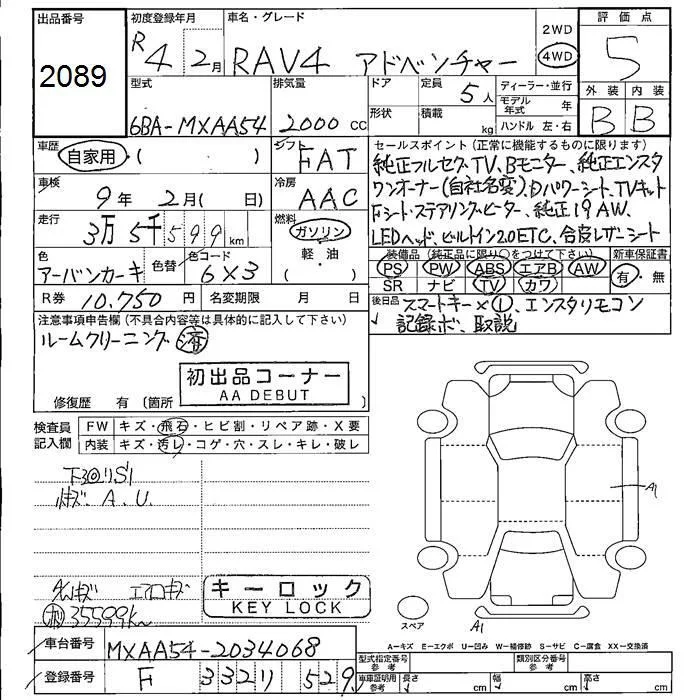 出品番号
2089
初度登録年月
R 4 2月
車名・グレード
RAV4 アドベンチャー
2WD
4WD
評価点
5
外装 内装
B B
型式
6BA-MXAA54
排気量
2000 cc
ドア
定員
5人
形状
積載
kg
ディーラー・並行
モデル年式
年
ハンドル 左・右
車歴
自家用・( )
シフト
FAT
セールスポイント(正常に機能するものに限ります)
純正フルセグTV、Bモニター、純正エンスタ
ワンオーナー(自社名変)、Dパワーシート、TVキット
Fシート・ステアリングヒーター、純正19AW、
LEDヘッド、ビルトイン2.0ETC、合皮レザーシート
車検
9年 2月( 日)
冷房
AAC
走行
3万5千599 km
燃料
ガソリン
軽・油
( )
色
アーバンカーキ
色替
色コード
6X3
装備品(純正品に限り○をつけて下さい)
PS PW ABS エアB AW
SR ナビ TV カワ
新車保証書
有・無
R券 10.750円
名変期限 月 日
後日品
スマートキー×①、エンスタリモコン
記録ボ、取説
注意事項申告欄(不具合内容等は具体的に記入して下さい)
ルームクリーニング 済
初出品コーナー
AA DEBUT
修復歴 有(箇所
検査員記入欄
FW キズ・飛石・ヒビ割・リペア跡・X要
内装 キズ・汚レ・コゲ・穴・スレ・キレ・破レ
下回リS1
キズ、A、U、
エアロキズ
35599km
キーロック
KEY LOCK
A1
A1
スペア
A=キズ E=エクボ U=凹み W=補修跡 S=サビ C=腐食 XX=交換済
車台番号
MXAA54-2034068
登録番号
F 332リ 529
型式指定番号
参考
類別区分番号
参考
車庫証明用
参考
長さ cm
幅 cm
高さ cm